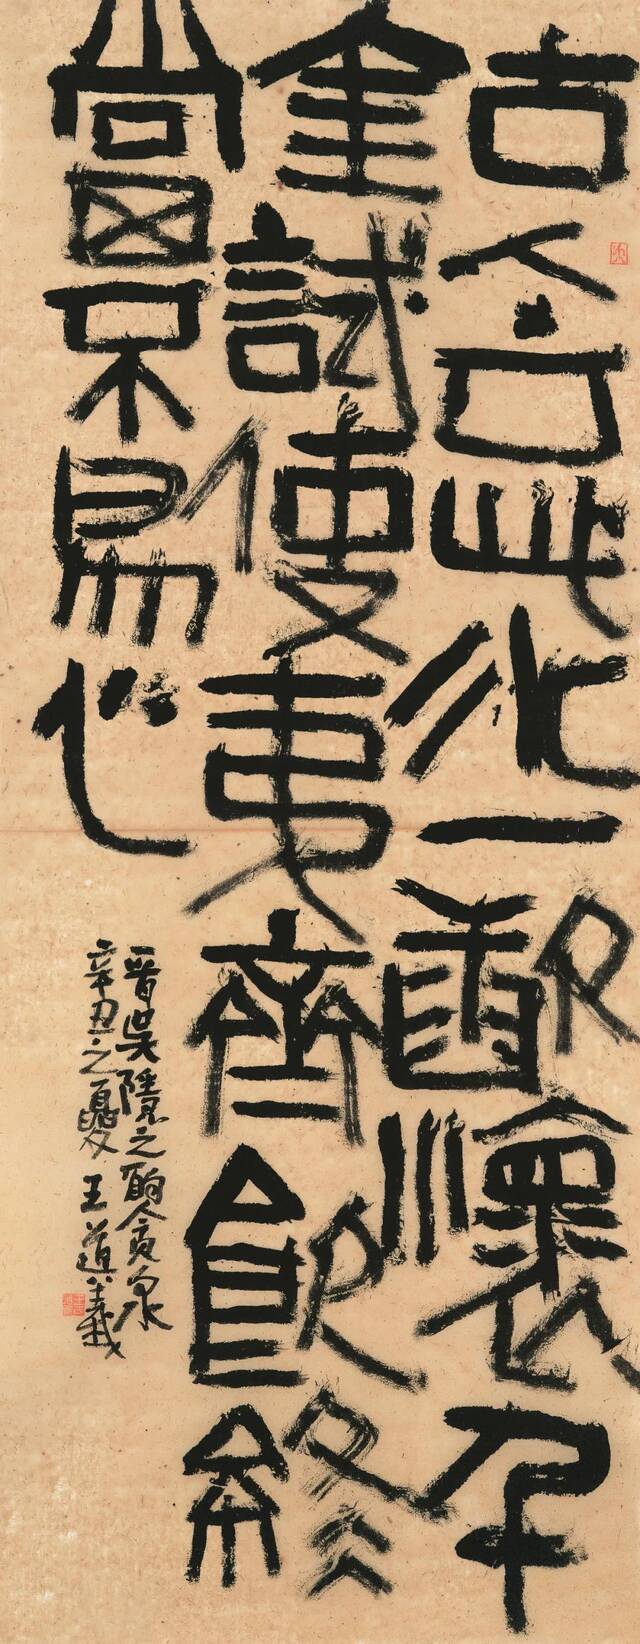 古人云此水一歃懷千
金試使夷齊飲終
當不易心
晋吳隱之酌貪泉
辛丑之夏 王道義